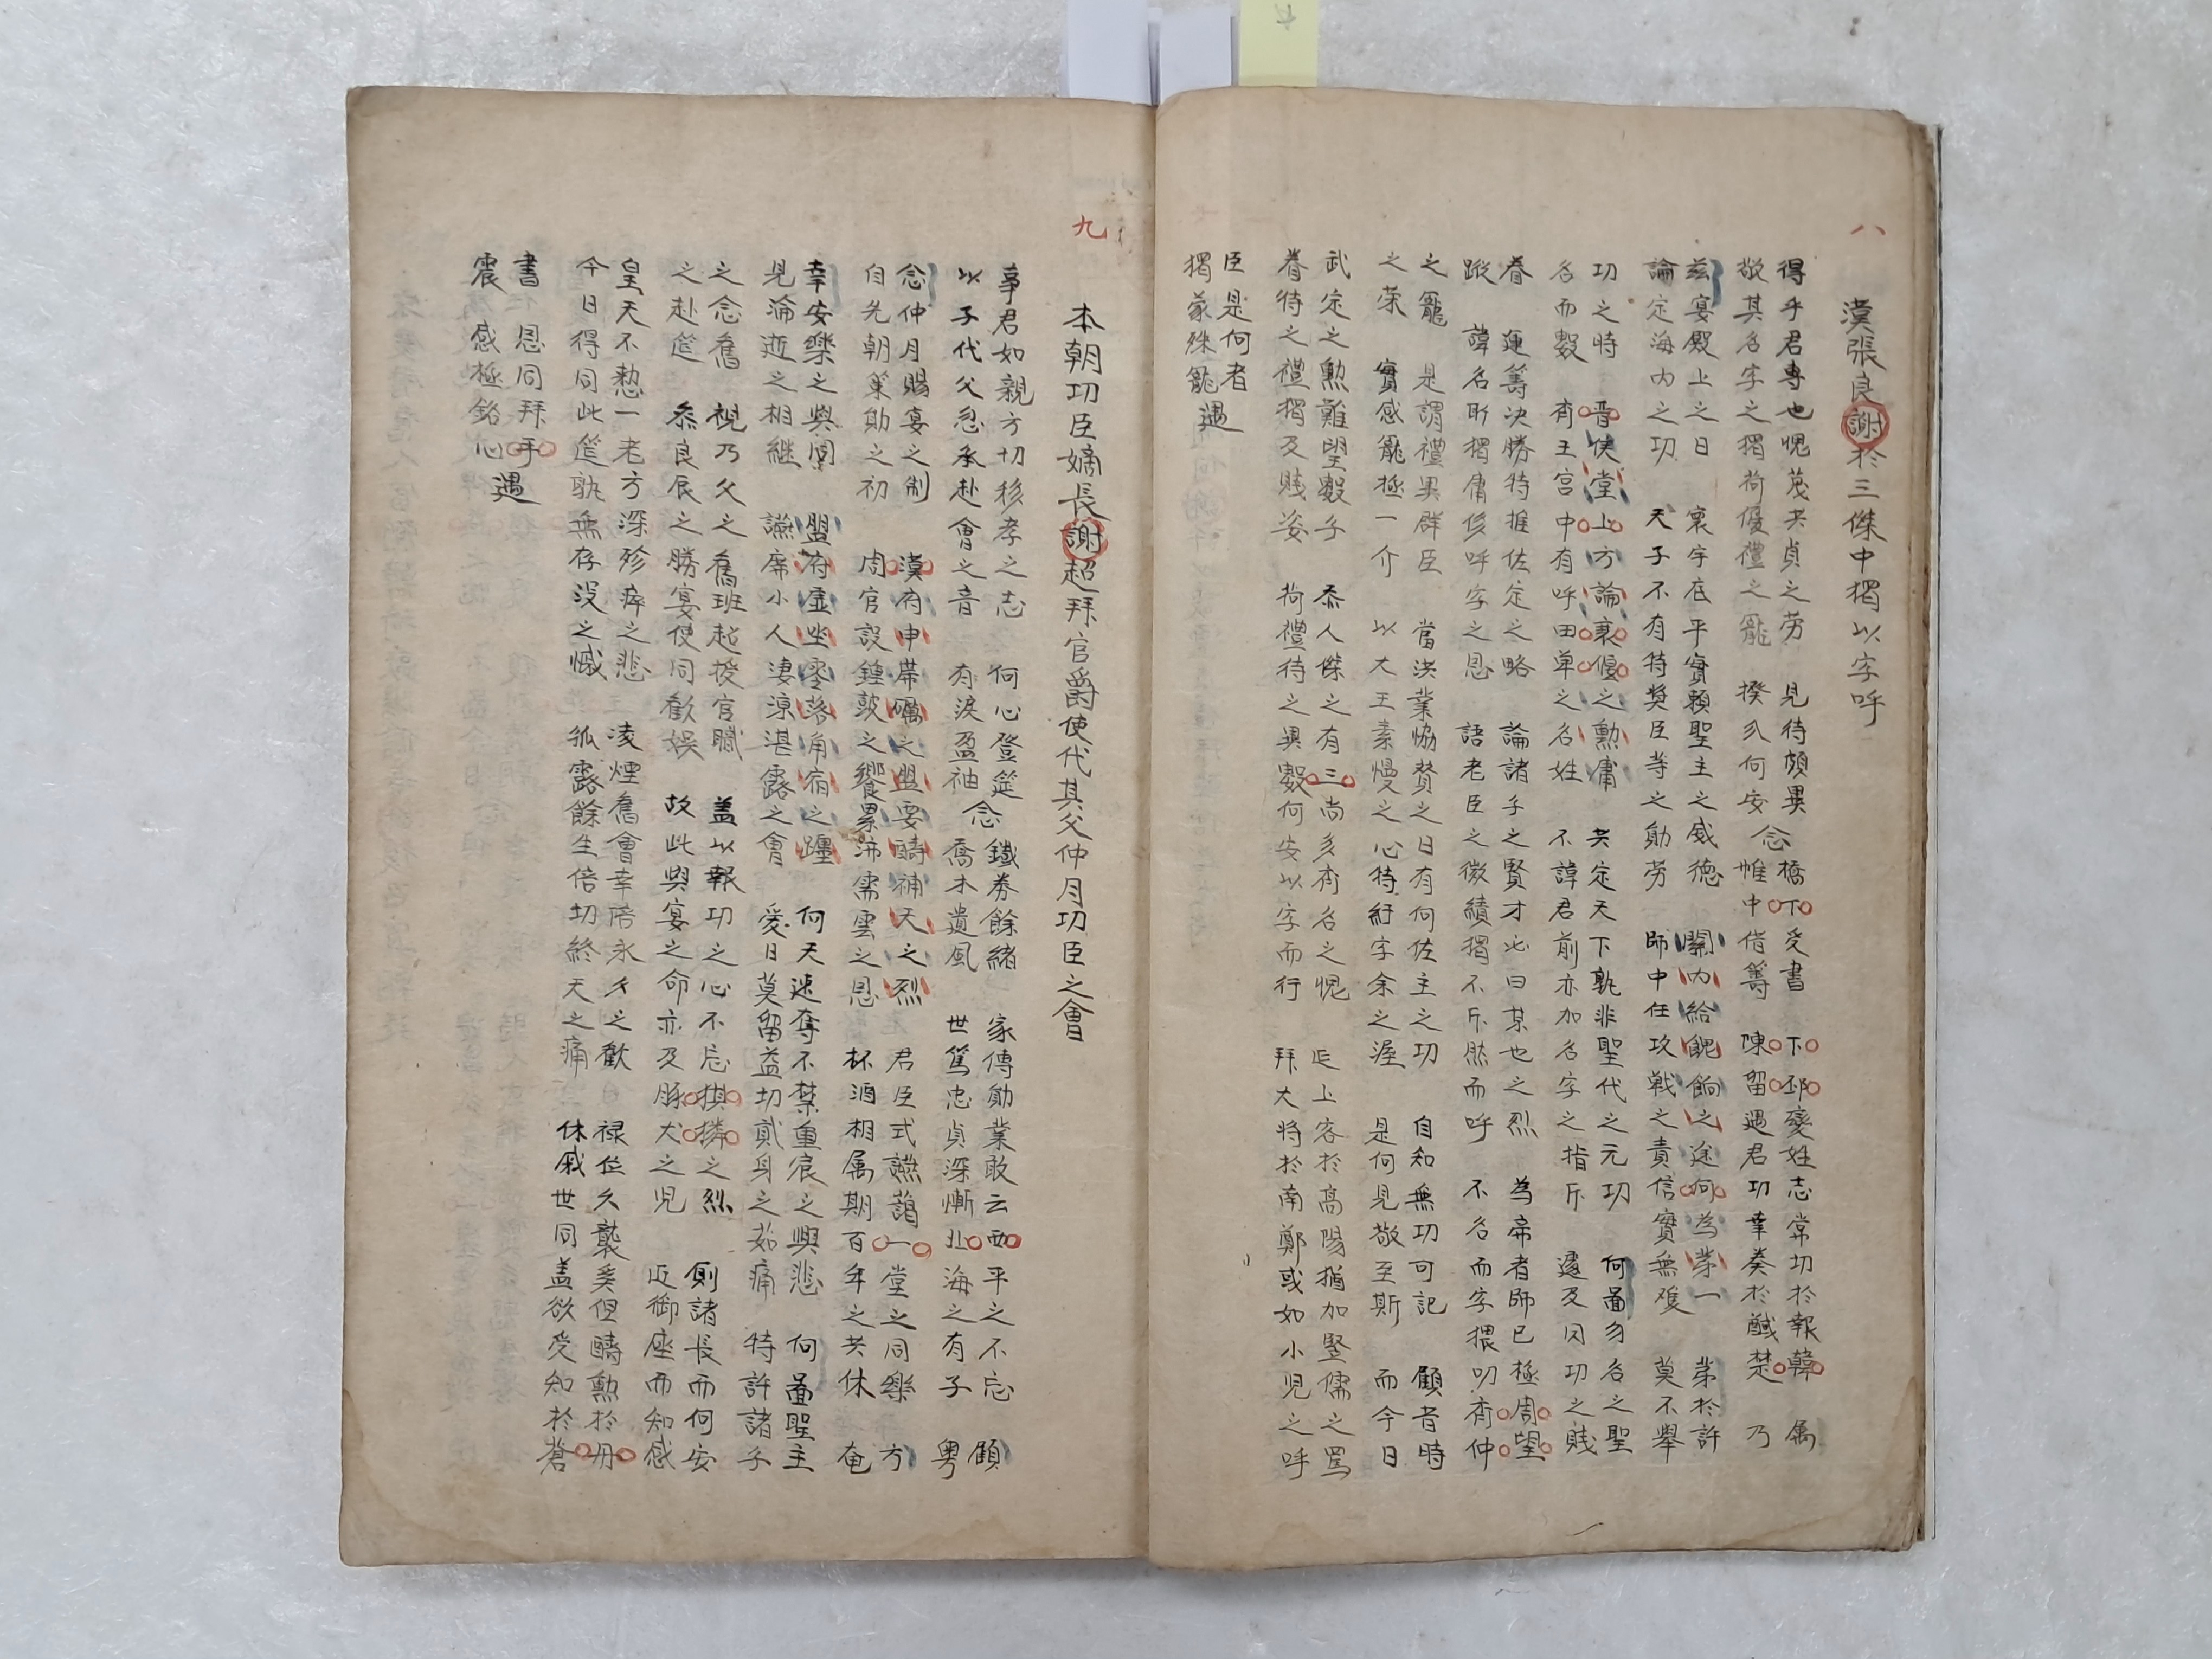 八
漢張良謝於三傑中獨以字呼
得乎君專也愧蔑夫貞之労 見待頗異念橋下受書 下邳變姓志常切於報韓 属
敬其名字之獨荷優禮之寵 揆分何安 惟中借籌 陳留遇君功幸奏於馘楚 乃
玆宴殿上之日 寰宇底平實賴聖主之威德 關内給餽餉之途何為苐一 苐於許
論定海内之功 天子不有特奬臣等之勛劳 師中任攻戦之責信實無雙 莫不舉
功之時 晋侠堂上方論裵偃之勲庸 共定天下孰非聖代之元功 何啚勿名之聖
名而數 齐王宫中有呼田单之名姓 不諱君前亦加名字之指斥 邊及因功之賎
眷 運籌决勝特推佐定之略 論諸子之賢才必曰某也之烈 為帝者師已極周望
蹤 諱名斫獨庸侈呼字之恩 語老臣之微績獨不斥然而呼 不名而字猥叨齐仲
之寵 是謂禮異群臣 當洪業恊賛之日有何佐主之功 自知無功可記 顧昔時
之荣 實感寵極一介 以大王素慢之心特紆字余之渥 是何見敬至斯 而今日
武定之勲難望數子 忝人傑之有三尚多齐名之愧 迋上客於高陽猶加竪儒之罵
眷待之禮獨及賎姿 荷禮待之異數何安以字而行 拜大将於南鄭或如小児之呼
臣是何者
獨蒙殊寵遇
九
本朝功臣嫡長謝超拜官爵使代其父仲月功臣之會
事君如親方切移孝之志 何心登筵念鐵券餘緒 家傳勛業敢云西平之不忘 顧
以子代父忽承赴會之音 有淚盈袖 喬木遺風 世篤忠貞深慚北海之有子 粤
念仲月賜宴之制 漢府申帶礪之盟要畴補天之烈 君臣式讌藹一堂之同樂 方
自先朝策勛之初 周官設鍾鼓之饗累沛需雲之恩 杯酒相属期百年之共休 奄
幸安樂之與同 盟府虛坐零落角宿之躔 何天速奪不禁重宸之興悲 何啚聖主
見淪逝之相継 讌席小人凄涼湛露之會 愛日莫留益切貳身之茹痛 特許諸子
之念舊 視乃父之舊班超授官職 盖以報功之心不忘摸獜之烈 側諸長而何安
之赴筵 忝良辰之勝宴使同歡娱 故此與宴之命亦及豚犬之児 迋御座而知感
皇天不憖一老方深殄瘁之悲 凌煙舊會幸陪永夕之歡 禄位久襲奚但疇勲於丹
今日得同此筵孰無存没之慽 孤露餘生倍切終天之痛 休戚世同盖欲受知於蒼
書 恩同拜手
宸 感極銘心遇